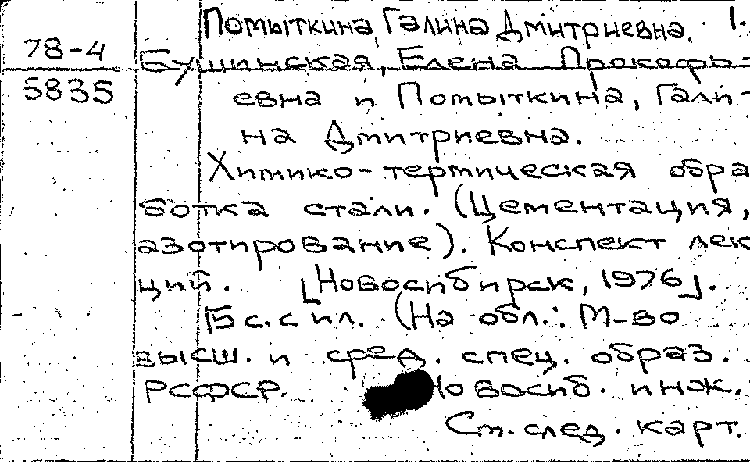 Помыткина, Галина Дмитриевна. 1.
78-4
Бушинская, Елена Прокофь-
5835
евна и Помыткина, Гали-
на Дмитриевна.
Химико-термическая обра
ботка стали. (Цементация,
азотирование). Конспект лек
ций. [Новосибирск, 1976].
с. с ил. (На обл.: М-во
высш. и сред. спец. образ.
РСФСР. Новосиб. инж.
См. след. карт.